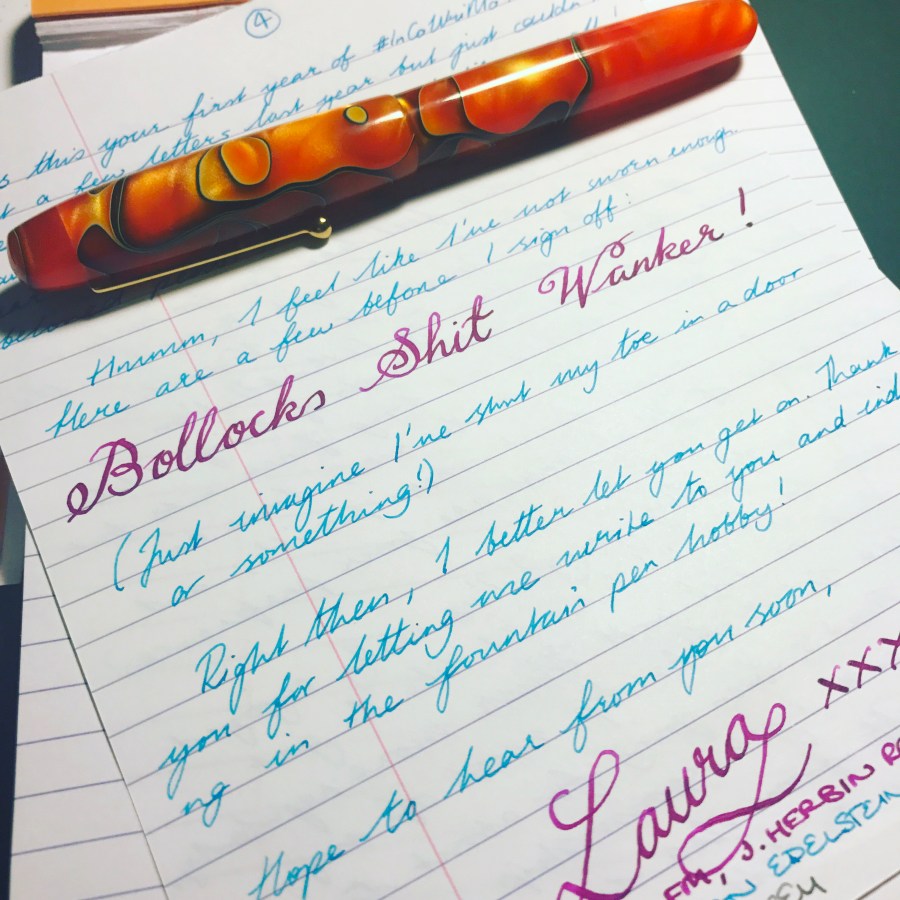 4
s this your first year of #InCoWriMo
t a few letters last year but just couldn
Hmmm, I feel like I've not sworn enough.
Here are a few before I sign off:
Bollocks Shit Wanker!
(Just imagine I've shut my toe in a door
or something!)
Right then, I better let you get on. Thank
you for letting me write to you and ind
ng in the fountain pen hobby!
Hope to hear from you soon,
Laura xxx
FM, J. HERBIN RO
EDELSTEIN